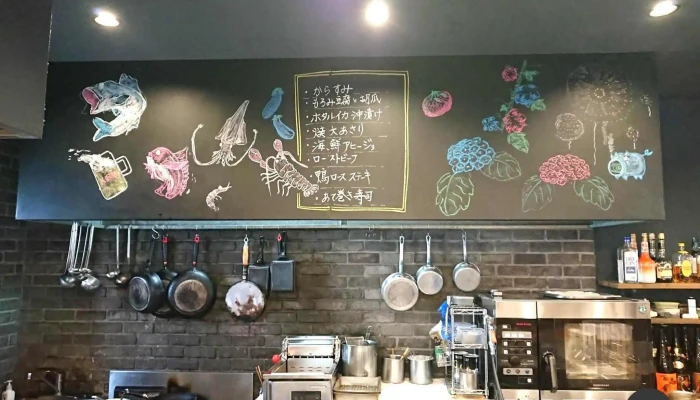 ・からすみ
・もろみ豆腐と胡瓜
・ホタルイカ沖漬け
・焼大あさり
・海鮮アヒージョ
・ローストビーフ
・鴨ロースステーキ
・あて巻き寿司